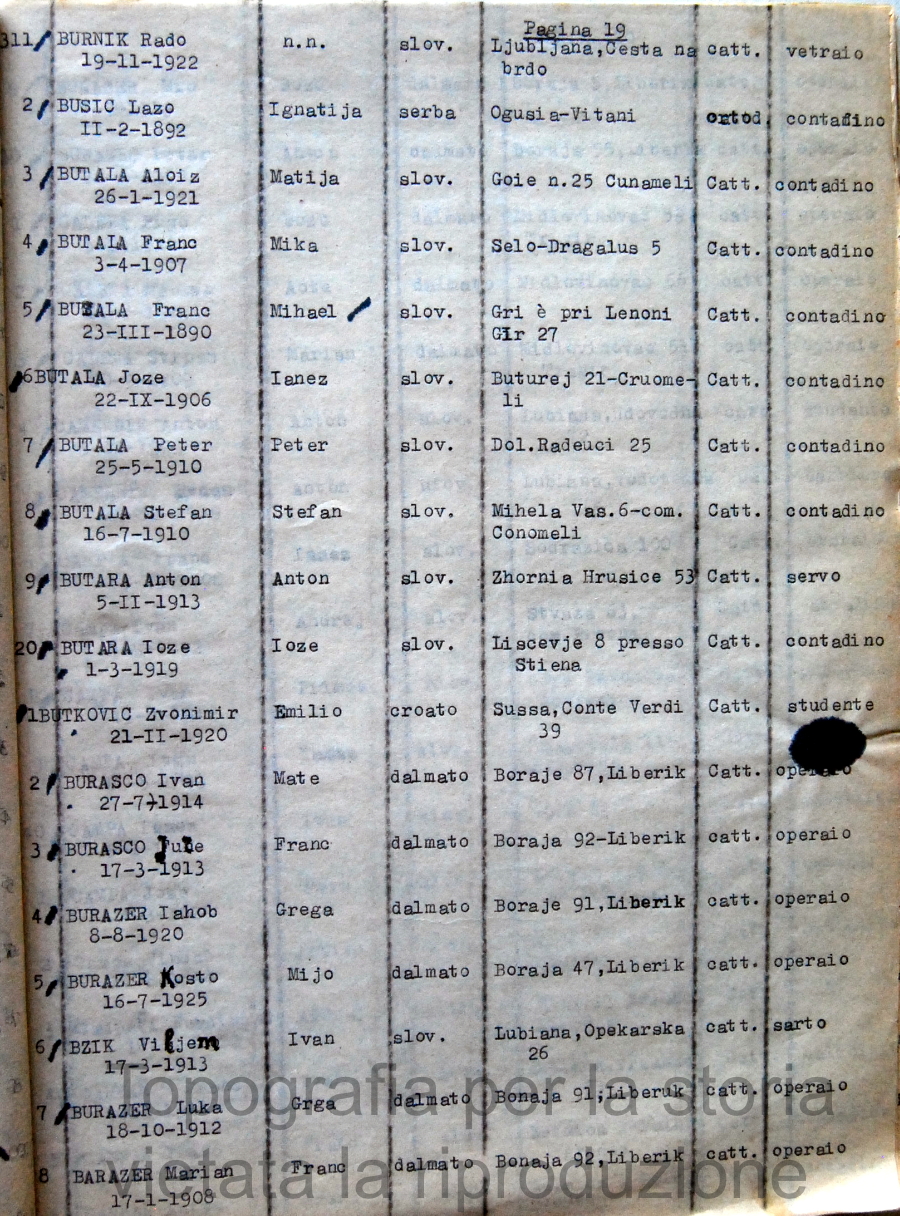 Pagina 19
311 BURNIK Rado n.n. slov. Ljubljana,Cesta na catt. vetraio
19-11-1922 brdo
2 BUSIC Lazo Ignatija serba Ogusia-Vitani ortod. contadino
II-2-1892
3 BUTALA Aloiz Matija slov. Goie n.25 Cunameli Catt. contadino
26-1-1921
4 BUTALA Franc Mika slov. Selo-Dragalus 5 Catt. contadino
3-4-1907
5 BUTALA Franc Mihael slov. Gri è pri Lenoni Catt. contadino
23-III-1890 GIr 27
6 BUTALA Joze Ianez slov. Buturej 21-Cruome- Catt. contadino
22-IX-1906 li
7 BUTALA Peter Peter slov. Dol.Radeuci 25 Catt. contadino
25-5-1910
8 BUTALA Stefan Stefan slov. Mihela Vas.6-com. Catt. contadino
16-7-1910 Conomeli
9 BUTARA Anton Anton slov. Zhornia Hrusice 53 Catt. servo
5-II-1913
20 BUTARA Ioze Ioze slov. Liscevje 8 presso Catt. contadino
1-3-1919 Stiena
1 BUTKOVIC Zvonimir Emilio croato Sussa,Conte Verdi Catt. studente
21-II-1920 39
2 BURASCO Ivan Mate dalmato Boraje 87,Liberik Catt. operaio
27-7-1914
3 BURASCO Franc dalmato Boraja 92-Liberik catt. operaio
17-3-1913
4 BURAZER Iahob Grega dalmato Boraje 91,Liberik catt. operaio
8-8-1920
5 BURAZER Kosto Mijo dalmato Boraja 47,Liberik catt. operaio
16-7-1925
6 BZIK Viljem Ivan slov. Lubiana,Opekarska catt. sarto
17-3-1913 26
7 BURAZER Luka Grga dalmato Bonaja 91,Liberuk catt. operaio
18-10-1912
8 BARAZER Marian Franc dalmato Bonaja 92,Liberik catt. operaio
17-1-1908
Topografia per la storia
vietata la riproduzione